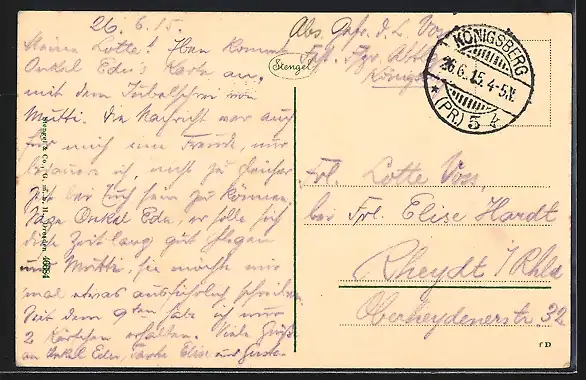 26.6.15.
Meine Lotte! Eben kommt
Onkel Edu's Karte an,
mit dem Jubelschrei von
Mutti. Die Nachricht war auch
für mich eine Freude, nur
bedauere ich, nicht zu gleicher
Zeit bei Euch sein zu können.
Sage Onkel Edu, er solle sich
die Zeit lang gut pflegen
und Mutti, sie möchte mir
mal etwas ausführlich schreiben.
Seit dem 9ten habe ich nur
2 Kärtchen erhalten. Viele Grüße
an Onkel Edu, Tante Elise und
Stengel
Abs. Gefr. d. L. Voss
Königsberg
KÖNIGSBERG
26.6.15.4-5N.
* (PR.) 5 k
Frl. Lotte Voss,
bei Frl. Elise Hardt
Rheydt / Rhld
Oberheydenerstr. 32
Stengel & Co., G. m. b. H., Dresden 49884
f D